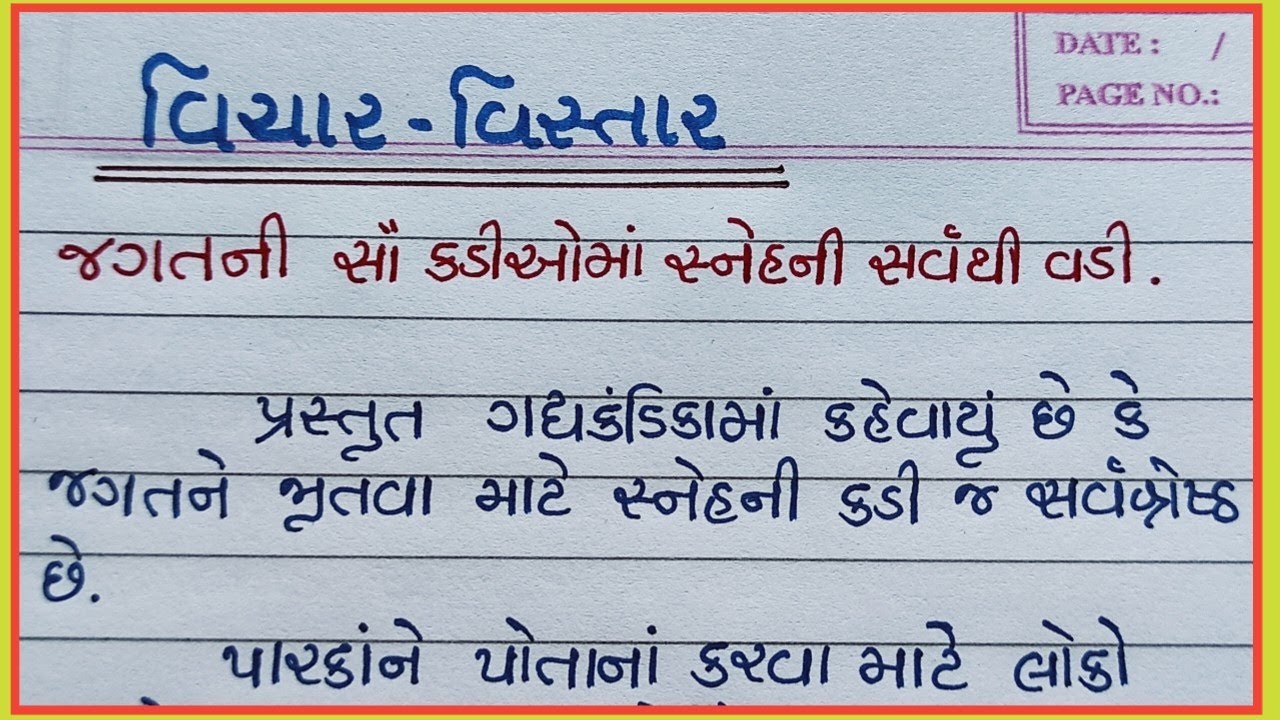 DATE : /
PAGE NO.:
વિચાર - વિસ્તાર
જગતની સૌ કડીઓમાં સ્નેહની સર્વથી વડી .
પ્રસ્તુત ગદ્યકંડિકામાં કહેવાયું છે કે
જગતને જીતવા માટે સ્નેહની કડી જ સર્વશ્રેષ્ઠ
છે.
પારકાંને પોતાનાં કરવા માટે લોકો